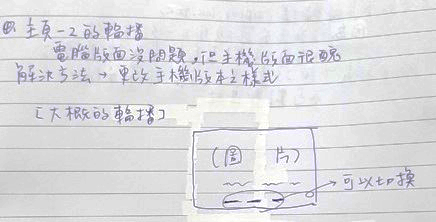 主頁-2 的輪播
電腦版面沒問題，但手機版面很醜
解決方法→更改手機版本之樣式
[大概的輪播]
(圖 片)
可以切換